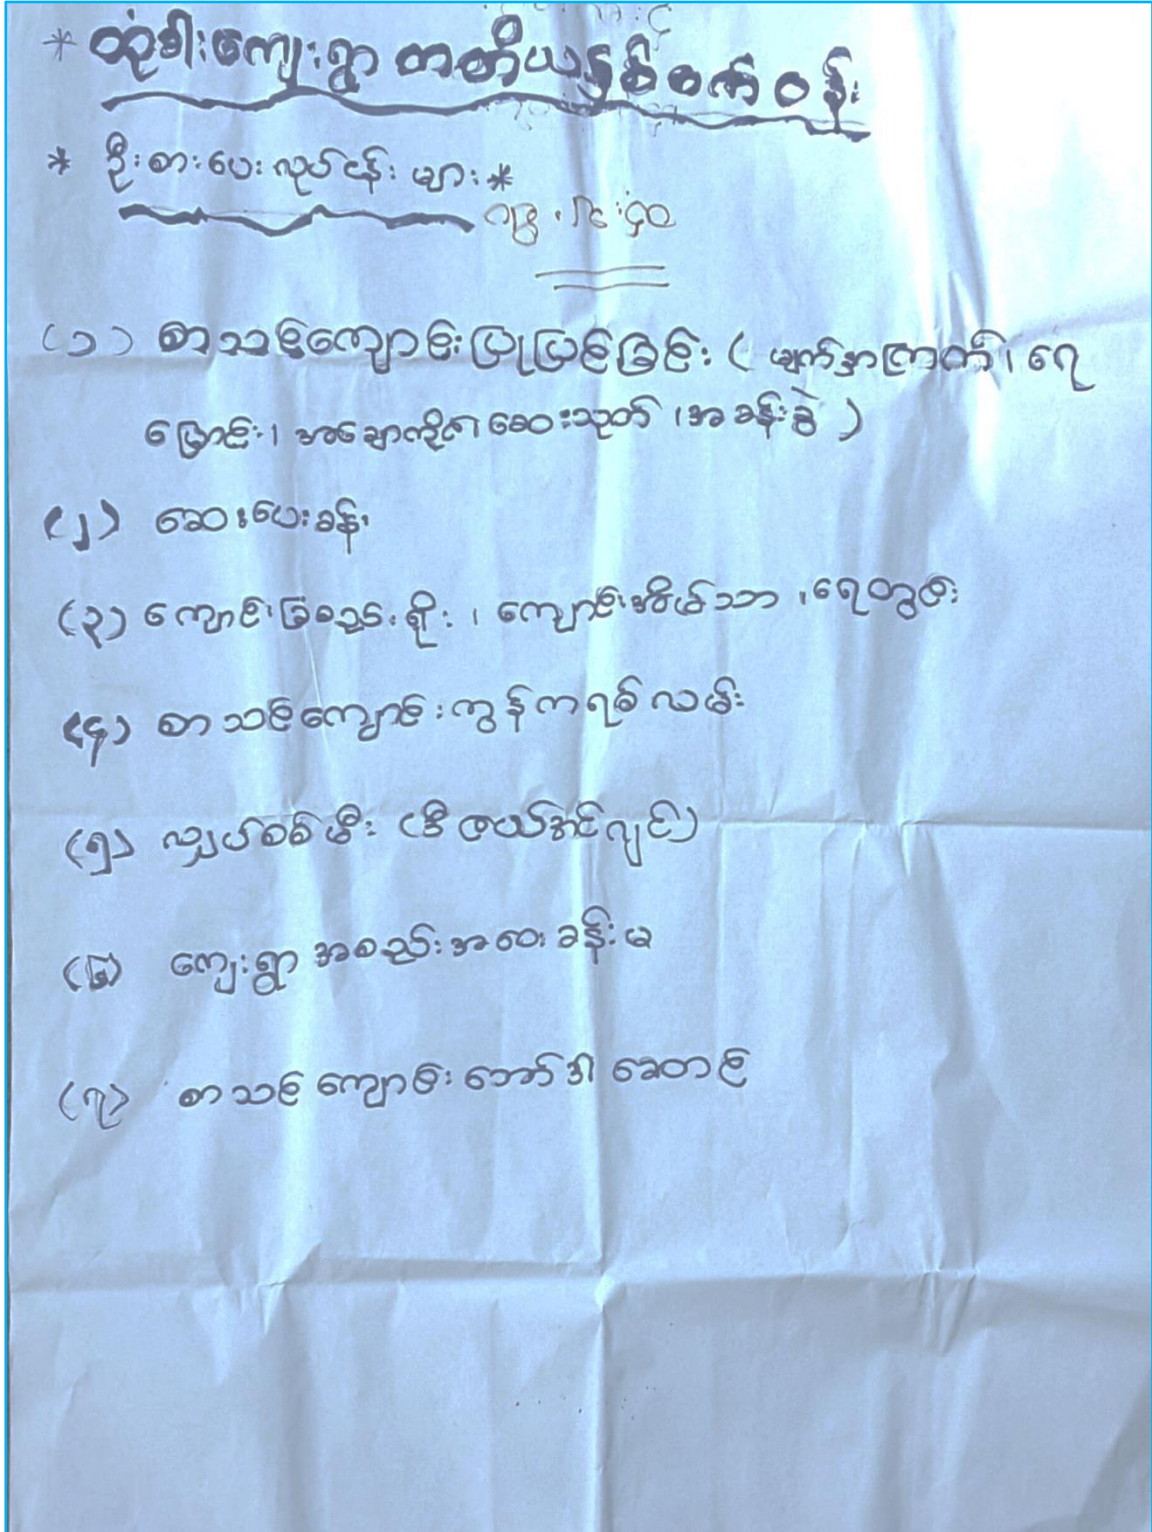 * ထုံဒါးကျေးရွာ တတိယနှစ်စက်ဝန်း
* ဦးစားပေးလုပ်ငန်းများ *
(၁) စာသင်ကျောင်းပြုပြင်ခြင်း ( မျက်နှာကြက်၊ ရေ
မြောင်း၊ အချောကိုင်၊ ဆေးသုတ် ၊အခန်းခွဲ )
(၂) ဆေးပေးခန်း
(၃) ကျောင်းခြံစည်းရိုး ၊ ကျောင်းအိမ်သာ ၊ရေတွင်း
(၄) စာသင်ကျောင်းကွန်ကရစ်လမ်း
(၅) လျှပ်စစ်မီး (ဒီဇယ်အင်ဂျင်)
(၆) ကျေးရွာအစည်းအဝေးခန်းမ
(၇) စာသင်ကျောင်းဘော်ဒါဆောင်